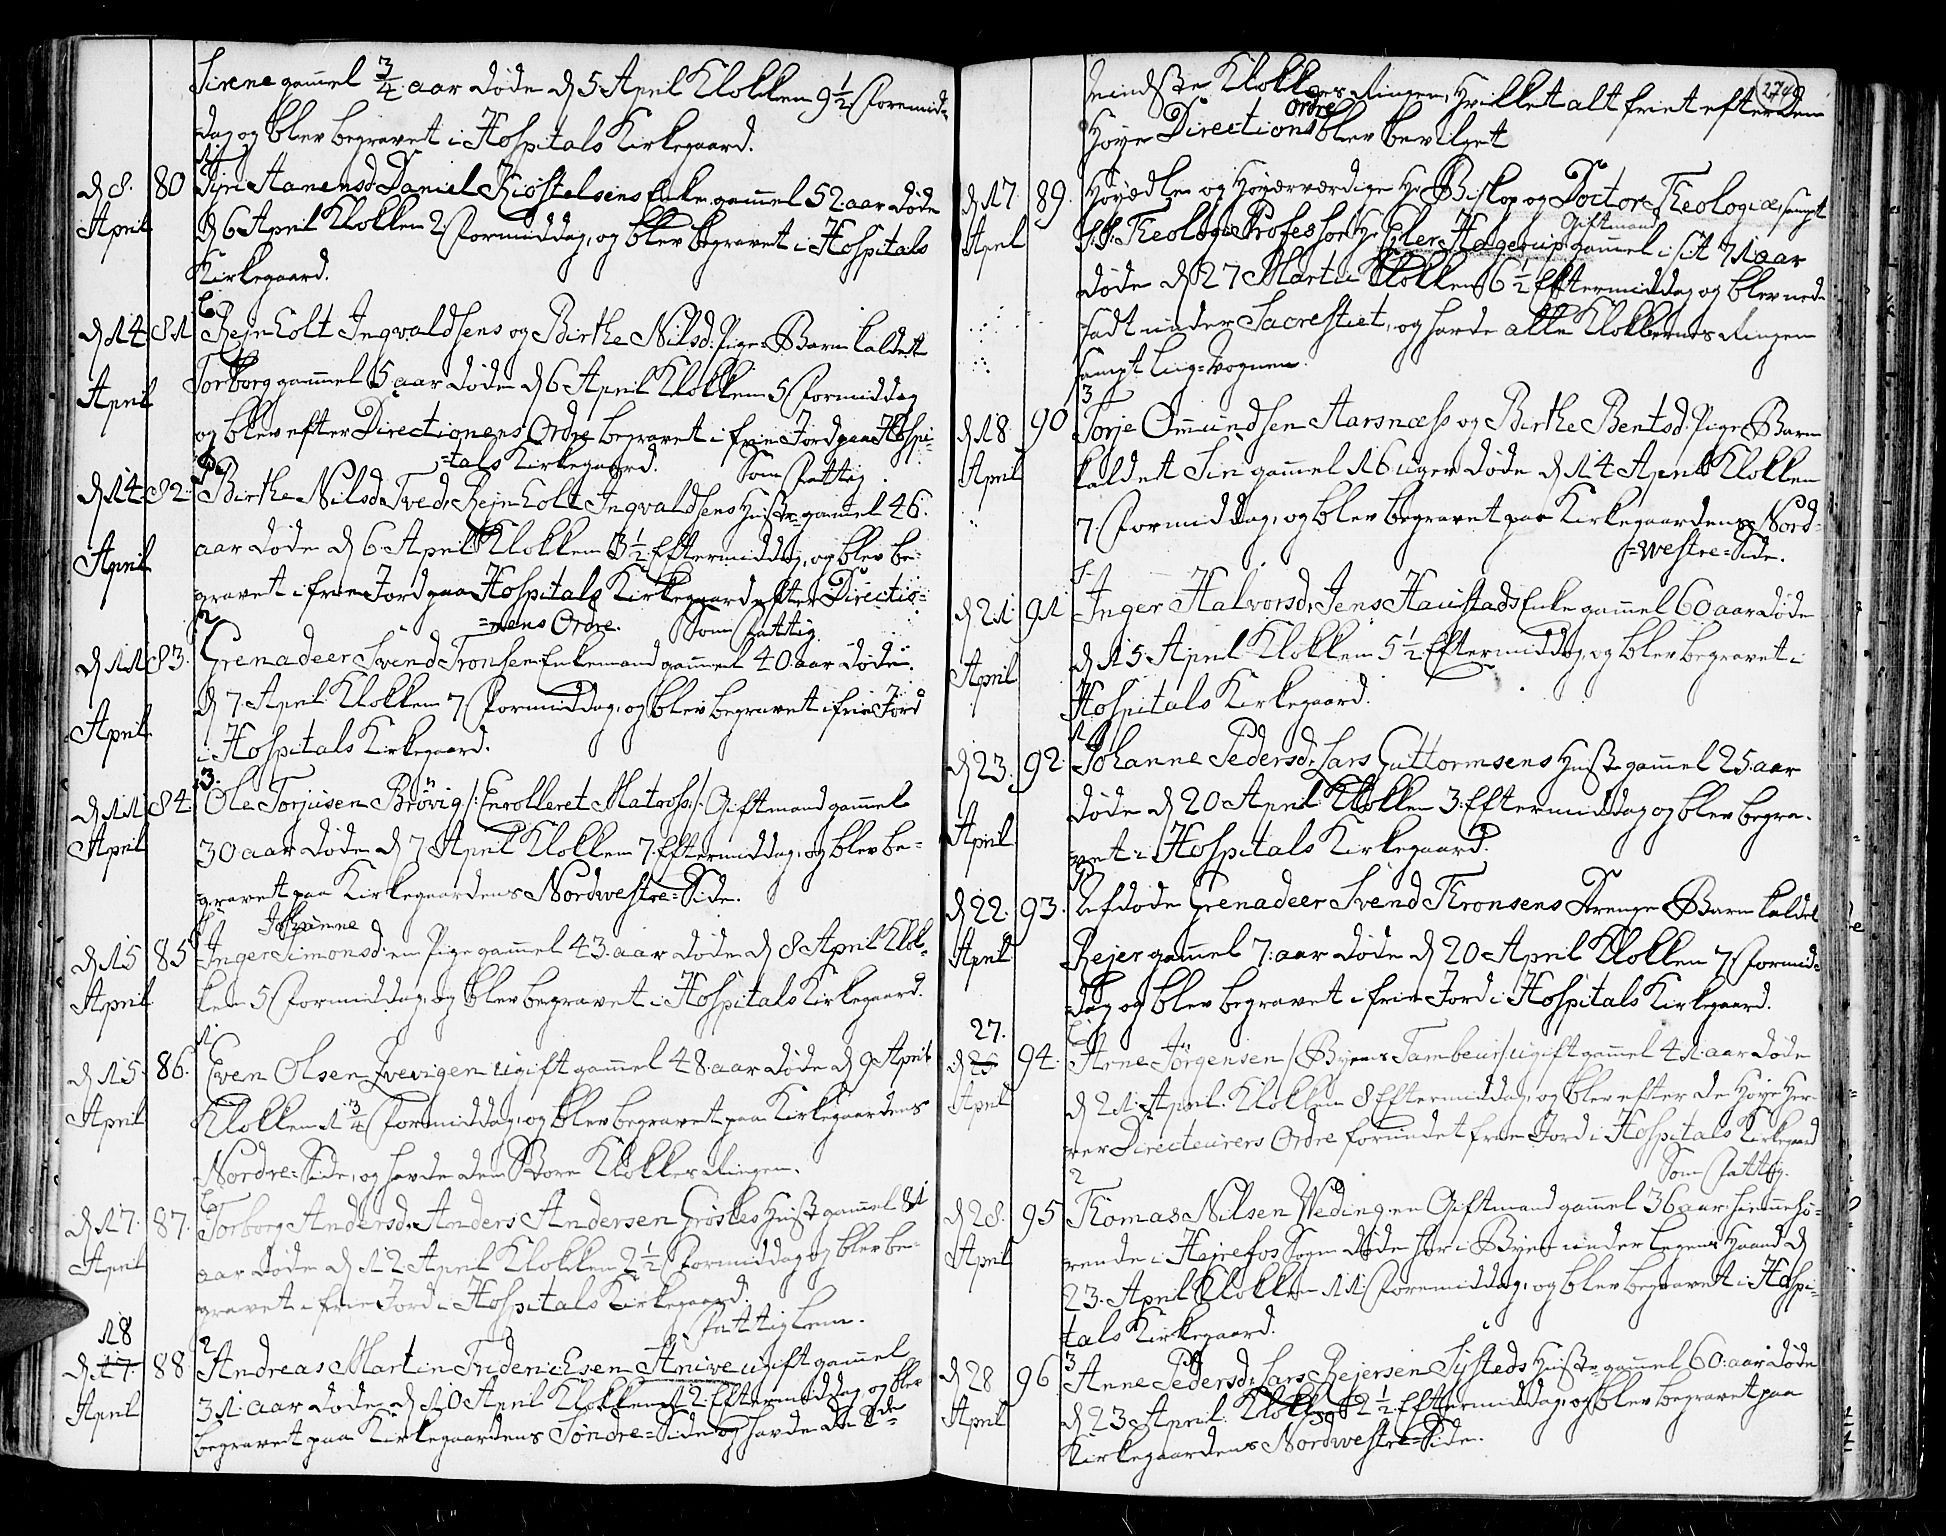 Sirene gammel 3/4 aar døde d 5 April Klokken 9 1/2 Formid-
dag og blev begravet i Hospitals Kirkegaard.
d 8. April 80 Siri Aanensd Daniel Kiøstelsens Enke gammel 52 aar døde
d 6 April Klokken 2 Formiddag, og blev begravet i Hospitals
Kirkegaard.
6
d 14 April 81 Rejnholt Ingvaldsens og Birthe Nilsd: Pige-Barn kaldet
Torborg gammel 5 aar døde d 6 April Klokken 5 Formiddag
og blev efter Directionens Ordre begravet i frie Jord paa Hospi-
=tals Kirkegaard. Som Fattig.
d 14 April 82. Birthe Nilsd Tved, Rejnholt Ingvaldsens Hustr gamel 46.
aar døde d 6 April Klokken 3 1/2 Eftermiddag, og blev be-
gravet i frie Jord paa Hospitals Kirkegaard efter Directio-
=nens Ordre. Som Fattig
2
d 11 April 83. Grenadeer Svend Tronsen Enkemand gammel 40 aar døde
d 7. April Klokken 7 Formiddag, og blev begravet i frie Jord
i Hospitals Kirkegaard.
3.
d 11 April 84. Ole Torjusen Brøvig /: Enrolleret Matross :/ Giftmand gammel
30 aar døde d 7 April Klokken 7 Eftermiddag, og blev be-
gravet paa Kirkegaardens Nordwestre=Side.
Johanne
d 15 April 85 Inger Simonsd: en Pige gammel 43 aar døde d 8 April Klok-
ken 5 Formiddag, og blev begravet i Hospitals Kirkegaard.
1
d 15. April 86. Even Olsen ugift gammel 48. aar døde d 9 April
Klokken 1 3/4 Formiddag, og blev begravet paa Kirkegaardens
Nordre=Side, og havde den Store Klokkes Ringen.
6
d 17. April 87. Torborg Andersd, Anders Andersen Grøskes Hustr gammel 81
aar døde d 12 April Klokken 2 1/2 Formiddag og blev be-
gravet i frie Jord i Hospitals Kirkegaard.
Fattiglem.
2
18
d 17. April 88 Andreas Martin Fridericksen Anive ugift gammel
31. aar døde d 10 April Klokken 12 Eftermiddag og blev
begravet paa Kirkegaardens Søndre=Side og havde de 2de
274
mindste Klokkers Ringen, Hvilket alt friet efter den
ordre
Høye Directions blev bevilget
d 17 April 89. Høyædle og Høyærværdige Hr Biskop og Doctor Theologiæ, sampt
Giftmand
S.S. Theologiæ Professor Hr Eiler Hagerup gammel i sit 71 aar
døde d 27 Martii Klokken 6 1/2 Eftermiddag og blev ned-
sadt under Sacrestiet, og havde alle Klokkernes Ringen
sampt Liig=Vognen.
3
d 18 April 90 Torje Ommundsen Aarsnæss og Birthe Bentsd: Pige-Barn
kaldet Siri gammel 16 uger døde d 14 April Klokken
7 Formiddag, og blev begravet paa Kirkegaardens Nord-
=westre=Side.
d 21. April 91 Inger Halvorsd, Jens Haustads Enke gammel 60 aar døde
d 15 April Klokken 5 1/2 Eftermiddag, og blev begravet i
Hospitals Kirkegaard.
1
d 23. April 92. Johanne Pedersd, Lars Guttormsens Hustr gammel 25 aar
døde d 20 April Klokken 3 Eftermiddag og blev begra-
vet i Hospitals Kirkegaard.
d 22. April 93. Afdøde Grenadeer Svend Thronsens Drenge-Barn kaldet
Rejer gammel 7: aar døde d 20 April Klokken 7 Formid-
dag og blev begravet i frie Jord i Hospitals Kirkegaard.
27.
d 25 April 94. Arne Jørgensen /: Byens Tambeur :/ ugift gammel 41. aar døde
d 21. April Klokken 8 Eftermiddag, og blev efter de Høye Her-
rer Directeurers Ordre forundet frie Jord i Hospitals Kirkegaard
Som Fattig.
2
d 28. April 95 Thomas Nilsen Weding, en Giftmand gammel 36 aar, hiemmehø-
rende i Hejrefos Sogn døde her i Byen under Legens Haand d
23. April Klokken 11 Formiddag, og blev begravet i Hospi-
tals Kirkegaard.
3
d 28 April 96 Anne Pedersd, Lars Rejersen Systads Hustr gammel 60 aar døde
d 23 April Klokken 2 1/2 Eftermiddag, og blev begravet paa
Kirkegaardens Nordwestre=Side.